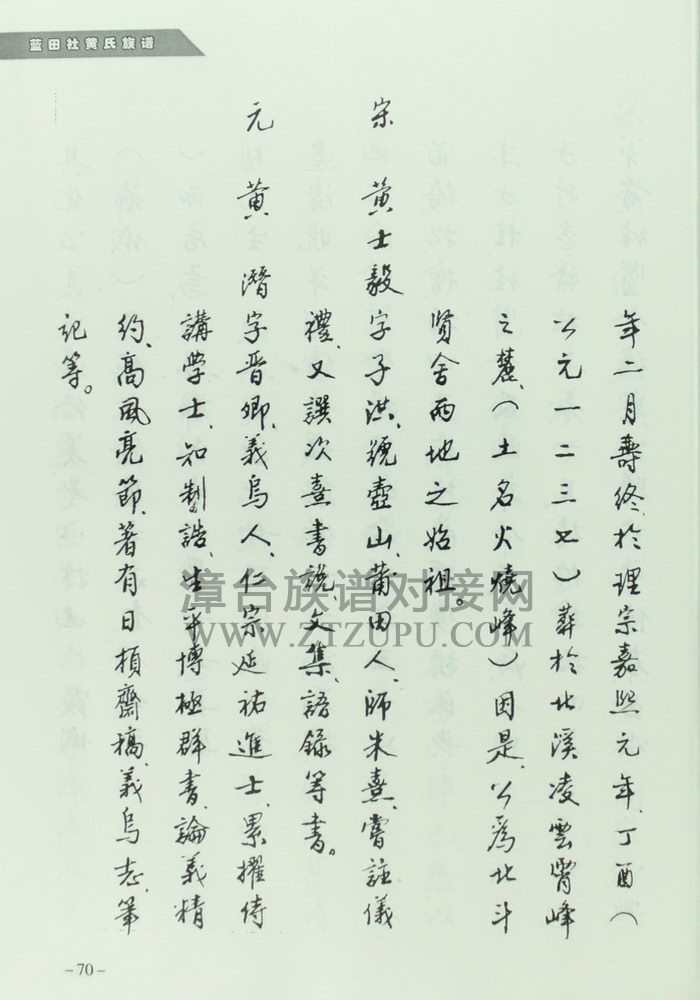 蓝田社黄氏族谱
年二月壽终、於理宗嘉熙元年、丁酉（
公元一二三七）葬於北溪凌雲霄峰
之麓、（土名火燒峰）因是、公爲北斗
賢舍兩地之始祖。
宋 黄士毅字子洪、號壺山、莆田人、師朱熹、嘗註儀
禮、又譔次熹書説、文集、語録等書。
元 黄 溍字晋卿、義烏人、仁宗延祐進士、累擢侍
講学士、知制誥、生平博極群書、論義精
约、高风亮節、著有日損齋稿、義烏志、筆
記等。
漳台族谱对接网
WWW.ZTZUPU.COM
-70-